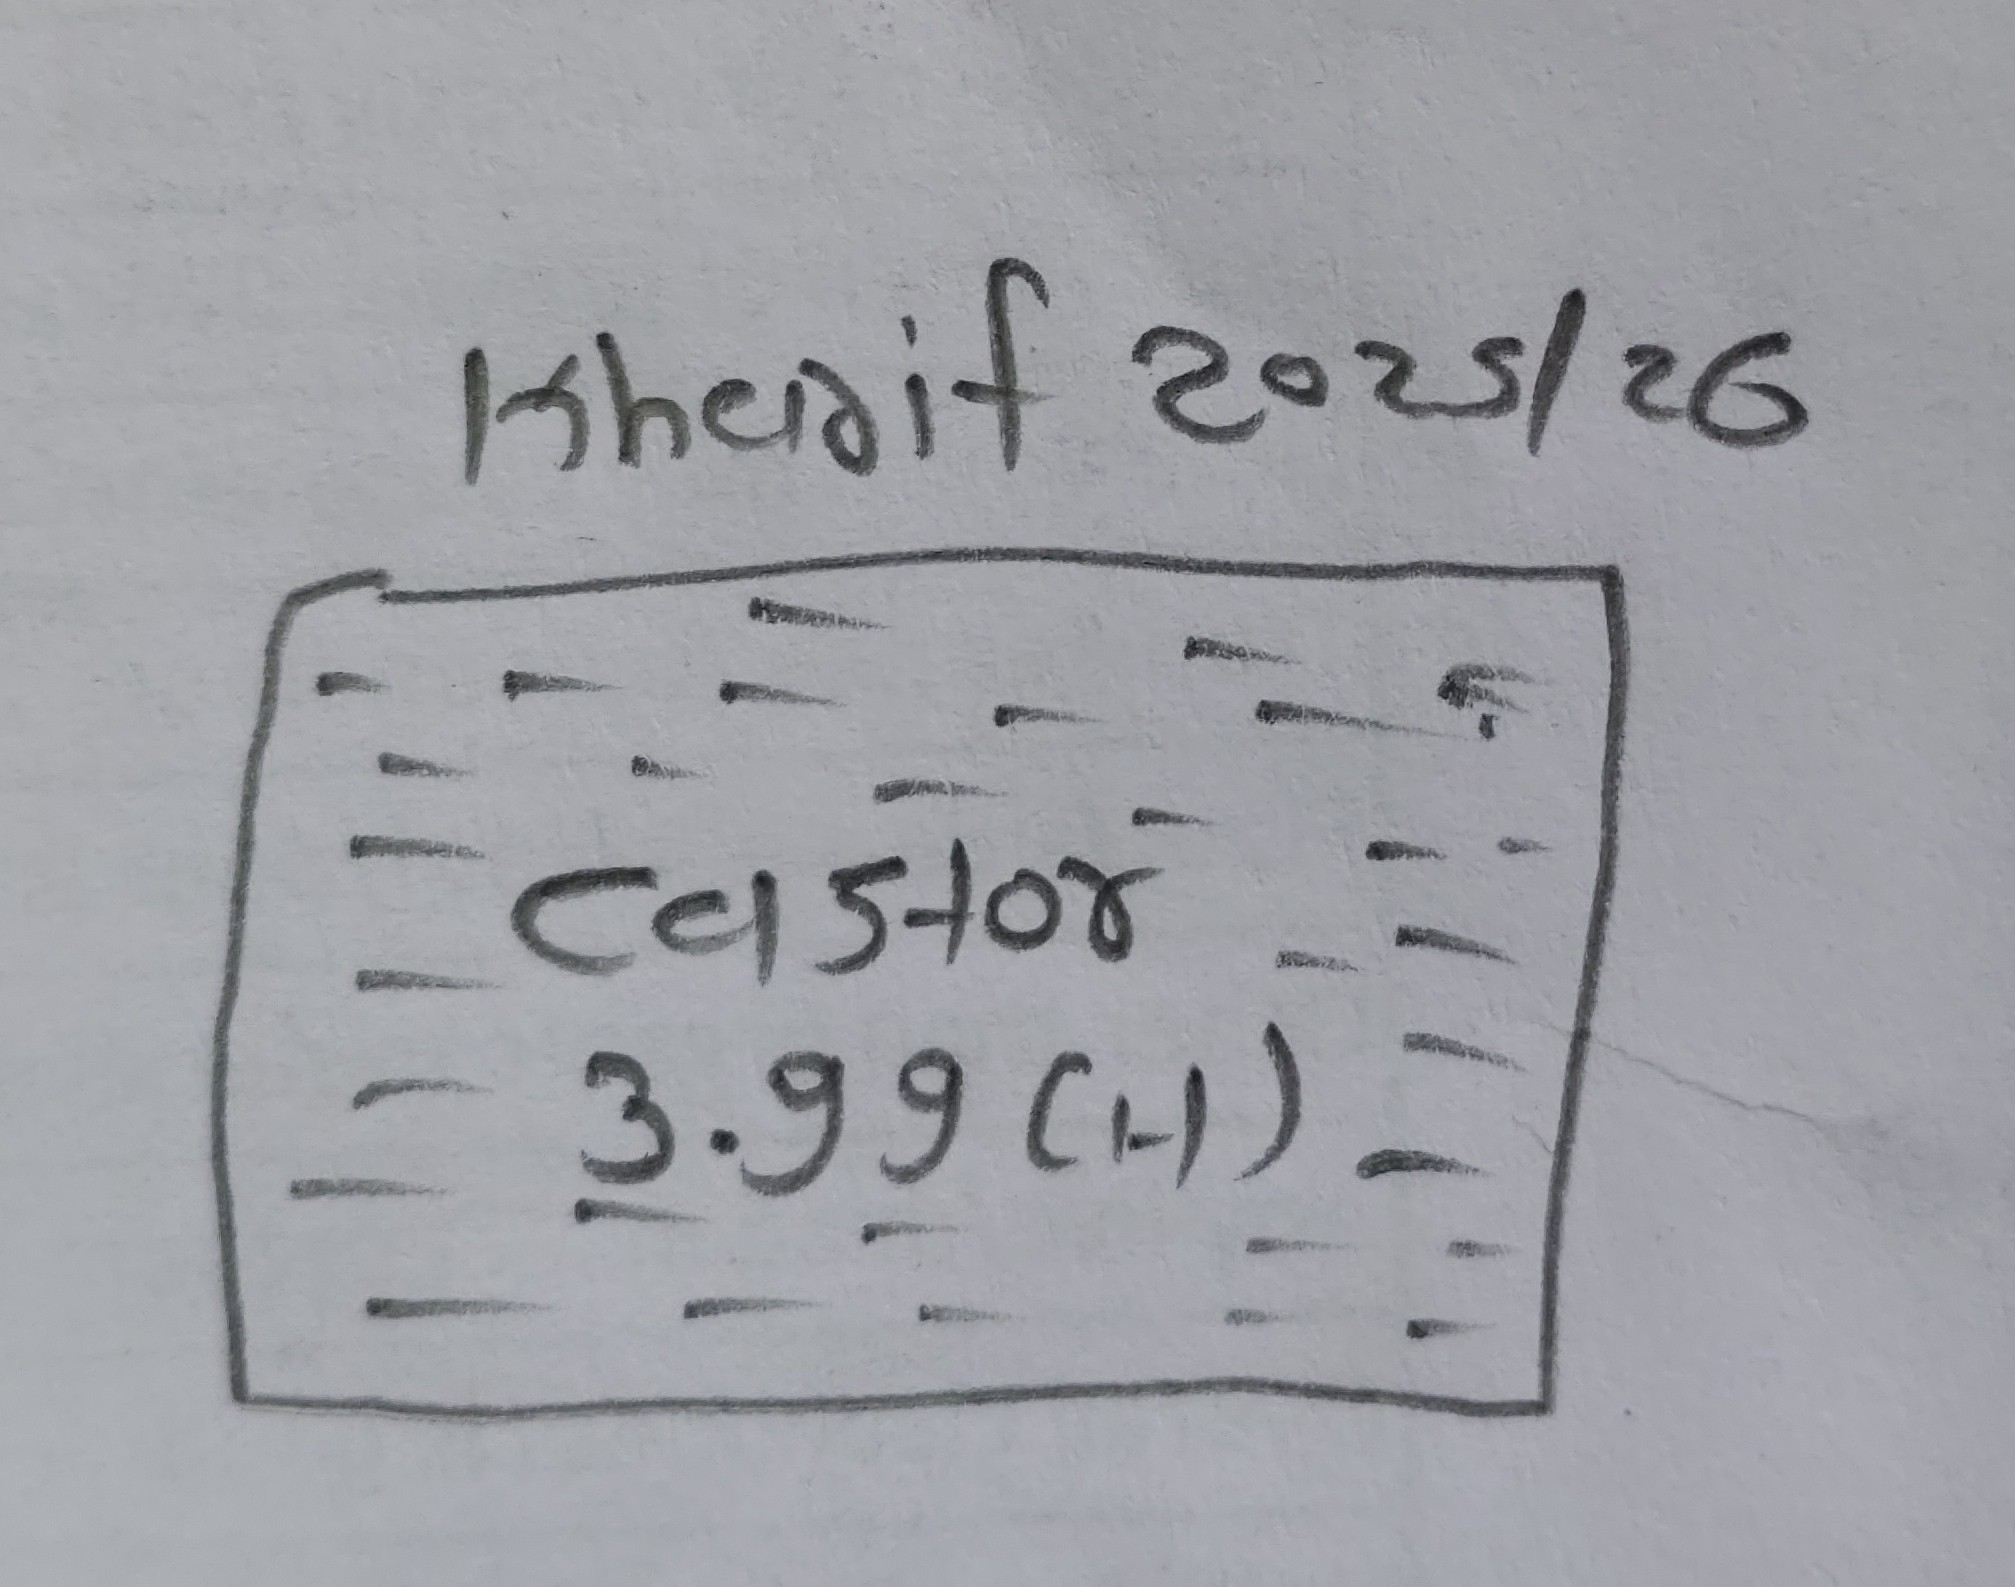 Kharif 2025/26
Castor
3.99 (H)